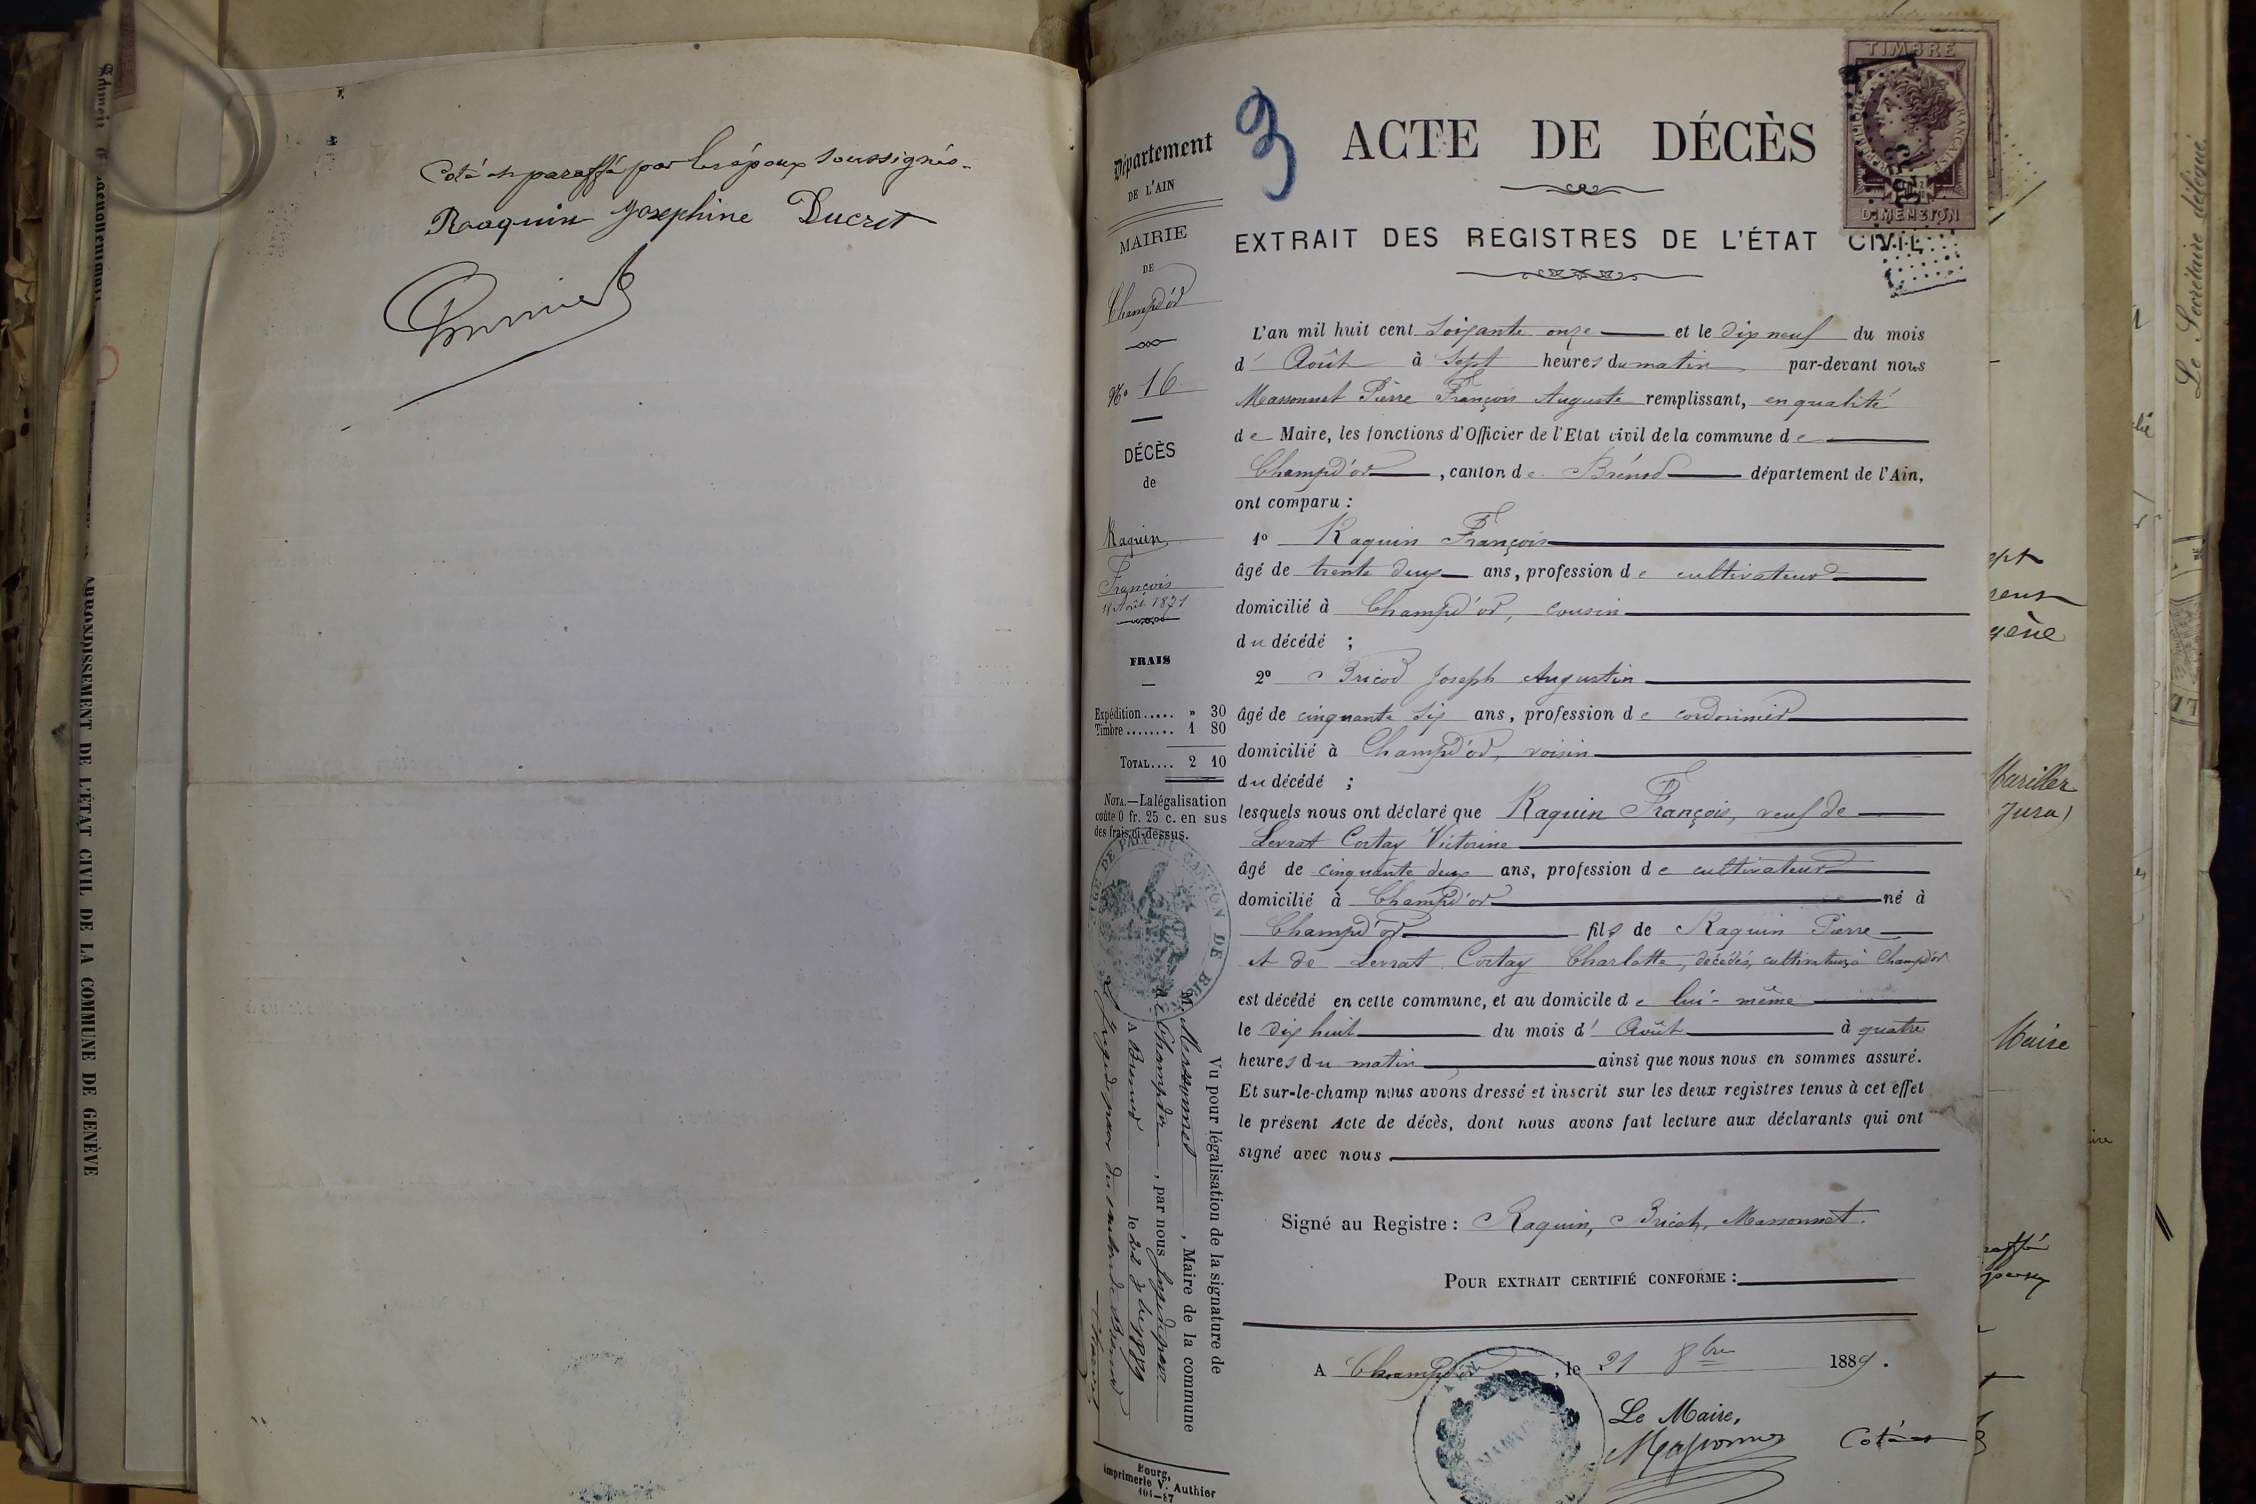 Coté et paraffé par les époux soussignés.
Raaquin Josephine Ducret
ARRONDISSEMENT DE L'ÉTAT CIVIL DE LA COMMUNE DE GENÈVE
Département
DE L'AIN
MAIRIE
DE
Champd'or
No 16
DÉCÈS
de
Raquin
François
18 Août 1871
FRAIS
Expédition..... » 30
Timbre........ 1 80
TOTAL.... 2 10
NOTA.—La légalisation
coûte 0 fr. 25 c. en sus
des frais ci-dessus.
Vu pour légalisation de la signature de
M. Massonnet, Maire de la commune
de Champdor, par nous Juge de paix
A Brenod le 22 8bre 1889
Le Juge de paix du canton de Brenod
Bourg,
imprimerie V. Authier
404—87
3
ACTE DE DÉCÈS
TIMBRE
DIMENSION
EXTRAIT DES REGISTRES DE L'ÉTAT CIVIL
L'an mil huit cent soixante onze et le dix neuf du mois
d' Août à sept heures du matin par-devant nous
Massonnet Pierre François Auguste remplissant, en qualité
de Maire, les fonctions d'Officier de l'Etat civil de la commune de
Champd'or, canton de Brénod département de l'Ain,
ont comparu :
1º Raquin François
âgé de trente deux ans, profession de cultivateur
domicilié à Champd'or, cousin
du décédé ;
2º Bricod Joseph Augustin
âgé de cinquante six ans, profession de cordonnier
domicilié à Champd'or, voisin
du décédé ;
lesquels nous ont déclaré que Raquin François, veuf de
Levrat Cortay Victorine
âgé de cinquante deux ans, profession de cultivateur
domicilié à Champd'or né à
Champd'or fils de Raquin Pierre
et de Levrat Cortay Charlotte, décédés, cultivateurs à Champd'or
est décédé en cette commune, et au domicile de lui-même
le dix huit du mois d' Août à quatre
heures du matin ainsi que nous nous en sommes assuré.
Et sur-le-champ nous avons dressé et inscrit sur les deux registres tenus à cet effet
le présent Acte de décès, dont nous avons fait lecture aux déclarants qui ont
signé avec nous
Signé au Registre : Raquin, Bricot, Massonnet.
POUR EXTRAIT CERTIFIÉ CONFORME :
A Champd'or, le 21 8bre 1889.
Le Maire,
Massonnet
Coté et
Le Secrétaire délégué,
Jura)
Maire